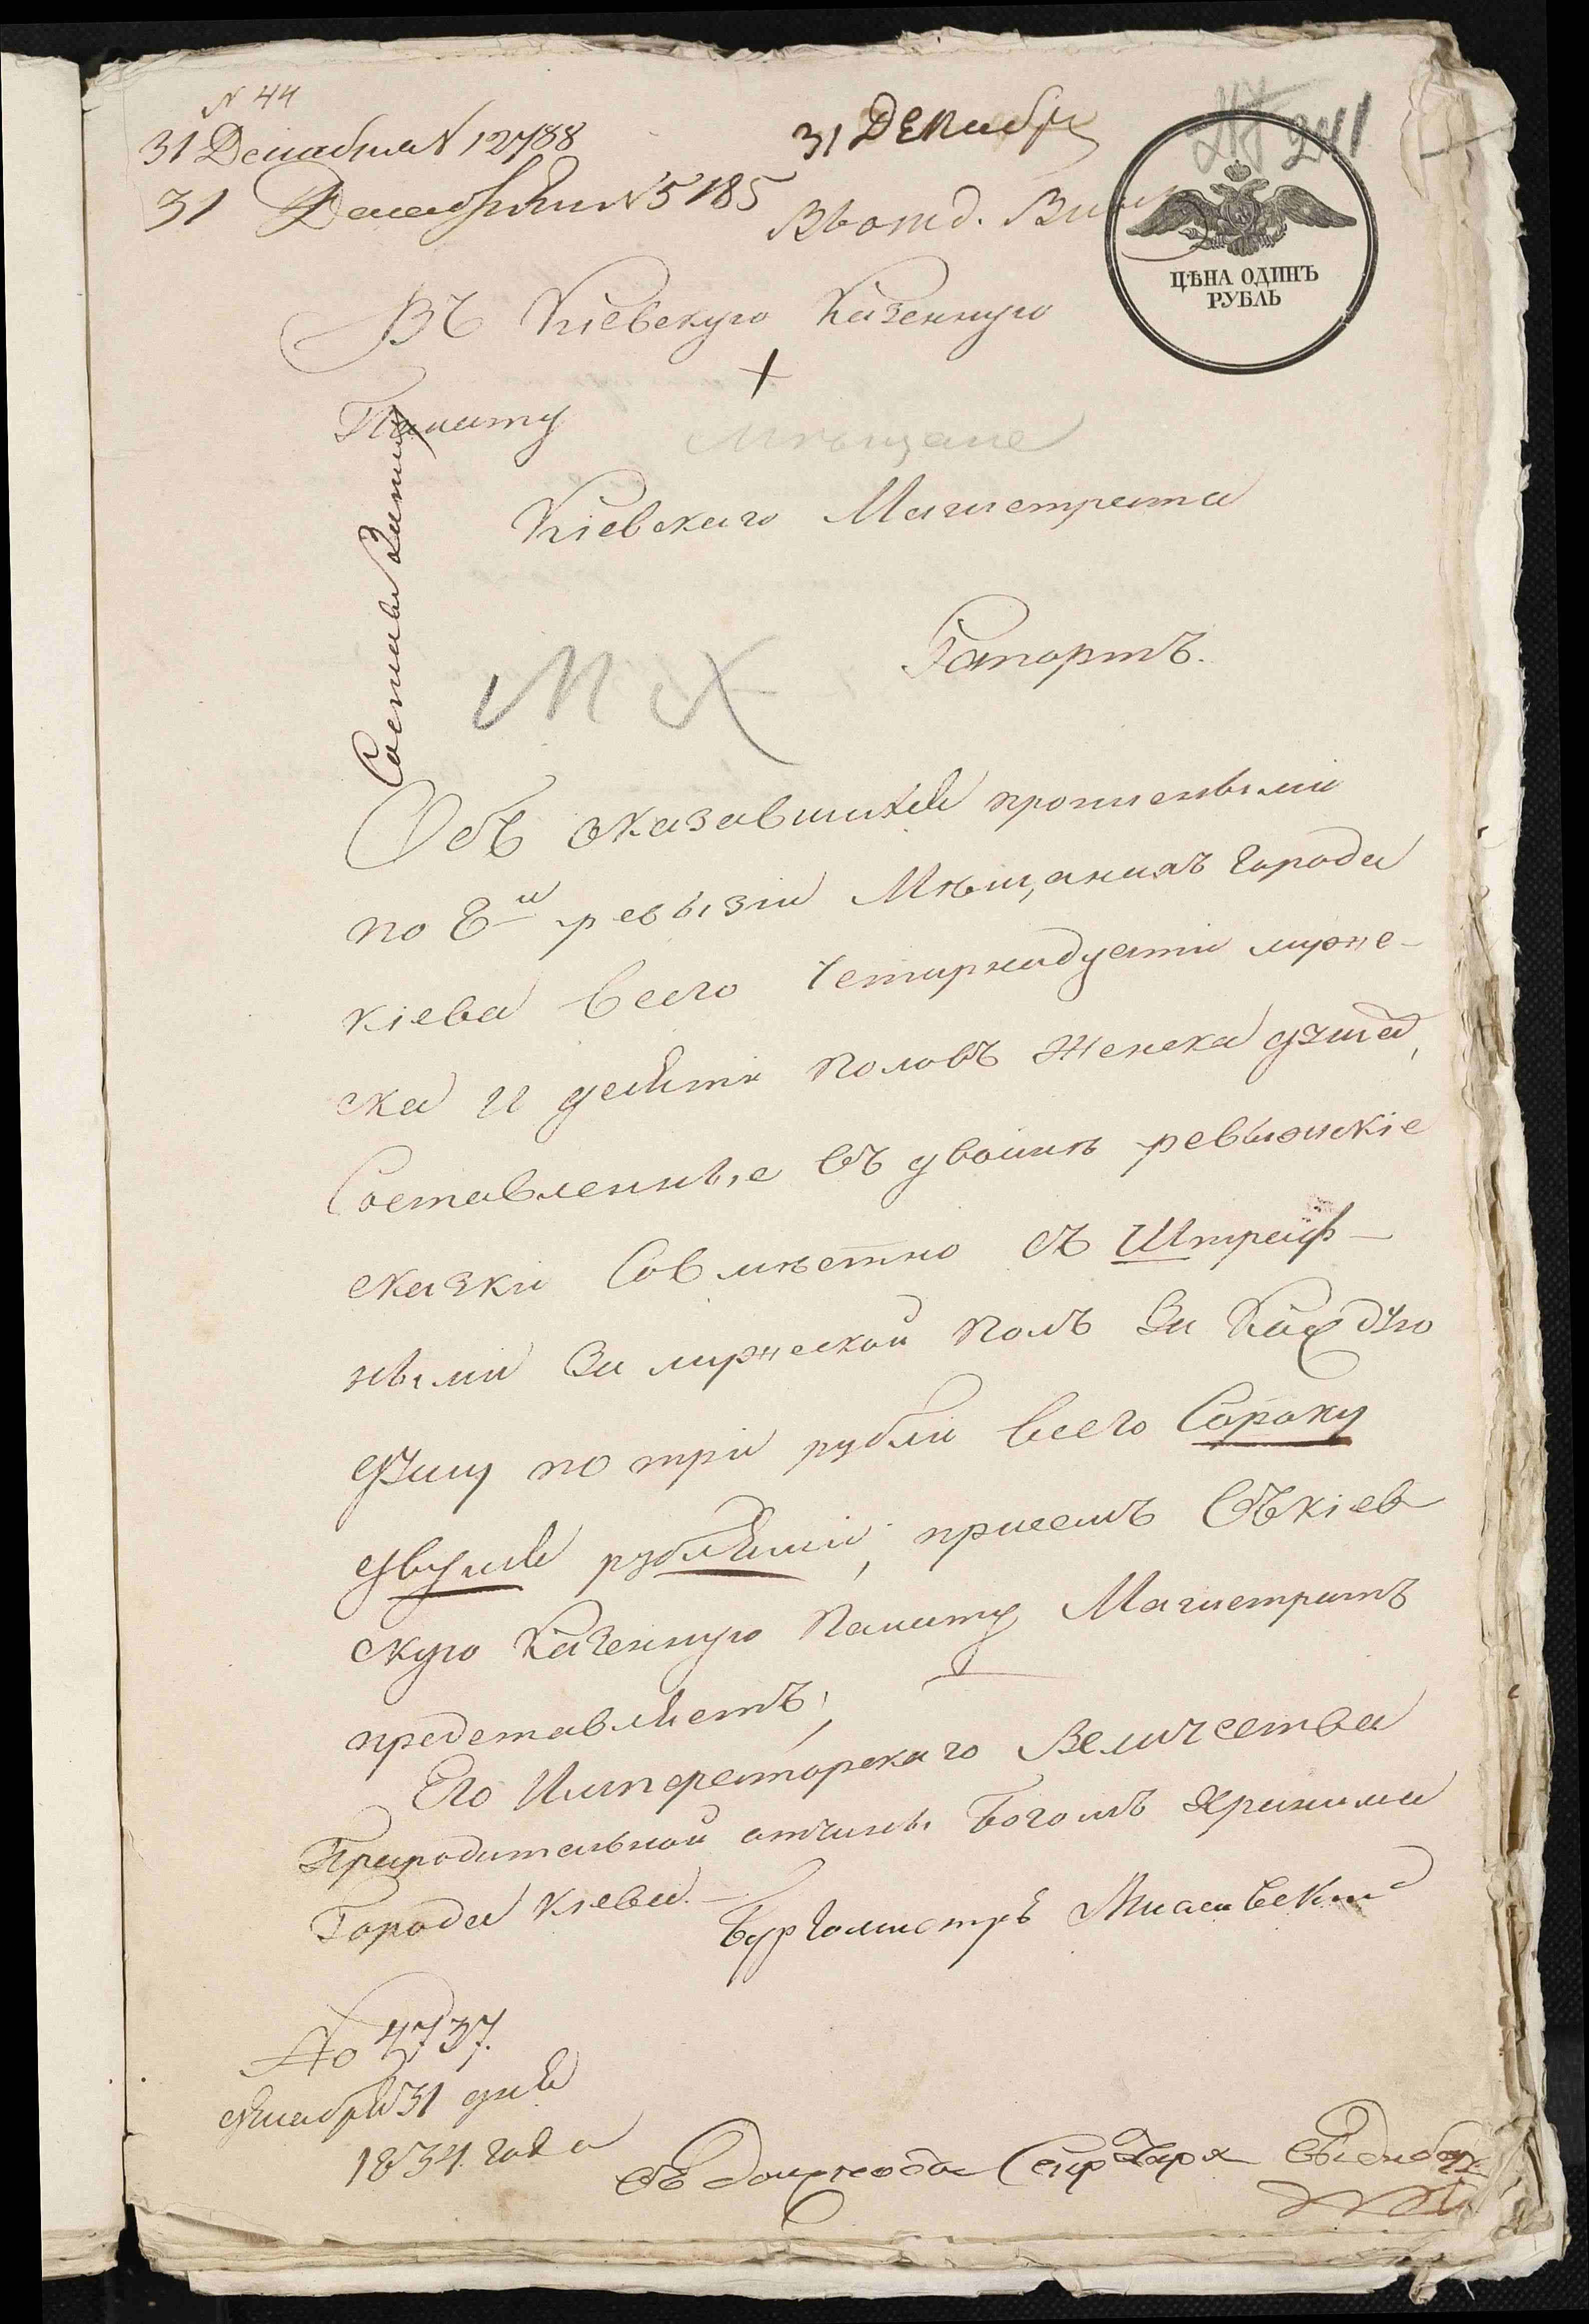 N 44
31 Декабря N 12788
31 Декабря N 5185
31 Декабр
241
Въ отд.
ЦѢНА ОДИНЪ
РУБЛЬ
Въ Кіевскую Казенную
Палату
Мѣщане
Кіевскаго Магистрата
Рапортъ.
Объ оказавшихся прописными
по 8й ревызіи Мѣщанихъ города
Кіева всего Четырнадцати муже-
ска и десяти половъ женска душъ,
Составленные въ двойнѣ ревызскіе
сказки Совмѣстно съ Штраф-
ными За мужеской полъ За Каждую
душу по три рубли всего Сороку
двумя рублями, присемъ Въ Кіев
скую Казенную Палату Магистратъ
представляетъ,
Его Императорскаго Величества
Прародительной отчины Богомъ хранима
Города Кіева.
Бургомистръ
No 4737.
Декабря 31 дня
1834 года
Въ должности Секретаря